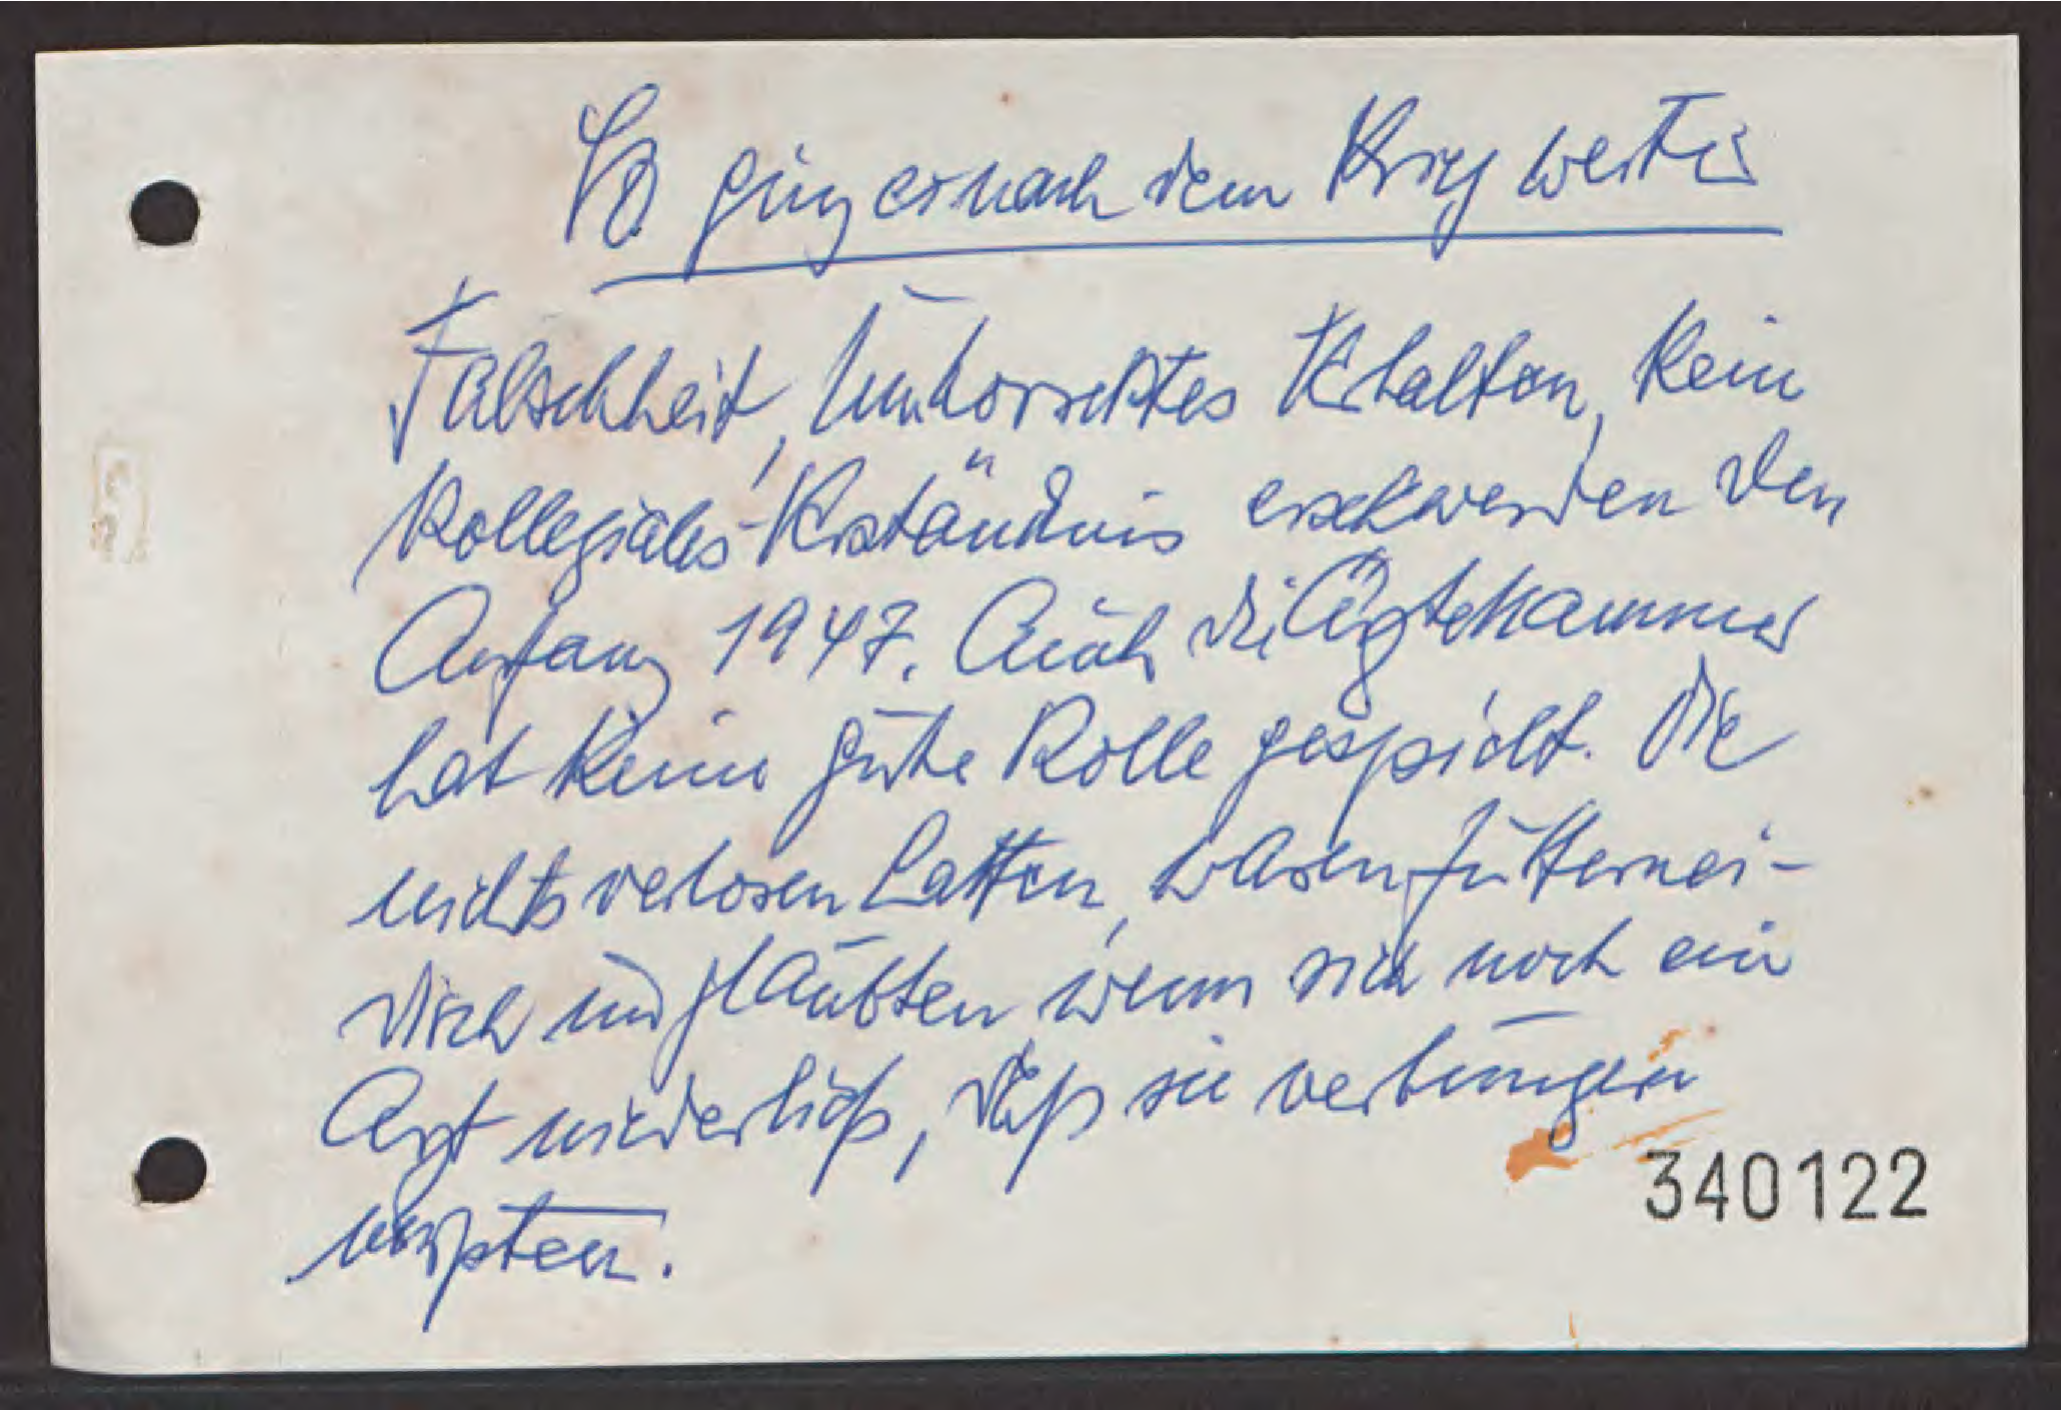 So ging es nach dem Krieg weiter
Falschheit, unkorrektes Verhalten, kein
kollegiales Verständnis erschwerden den
Anfang 1947. Auch die Ärztekammer
hat keine gute Rolle gespielt. Die
nichts verloren hatten, waren futternei-
disch und glaubten wenn sich noch ein
Arzt niederließ, daß sie verhungern
mußten.
340122